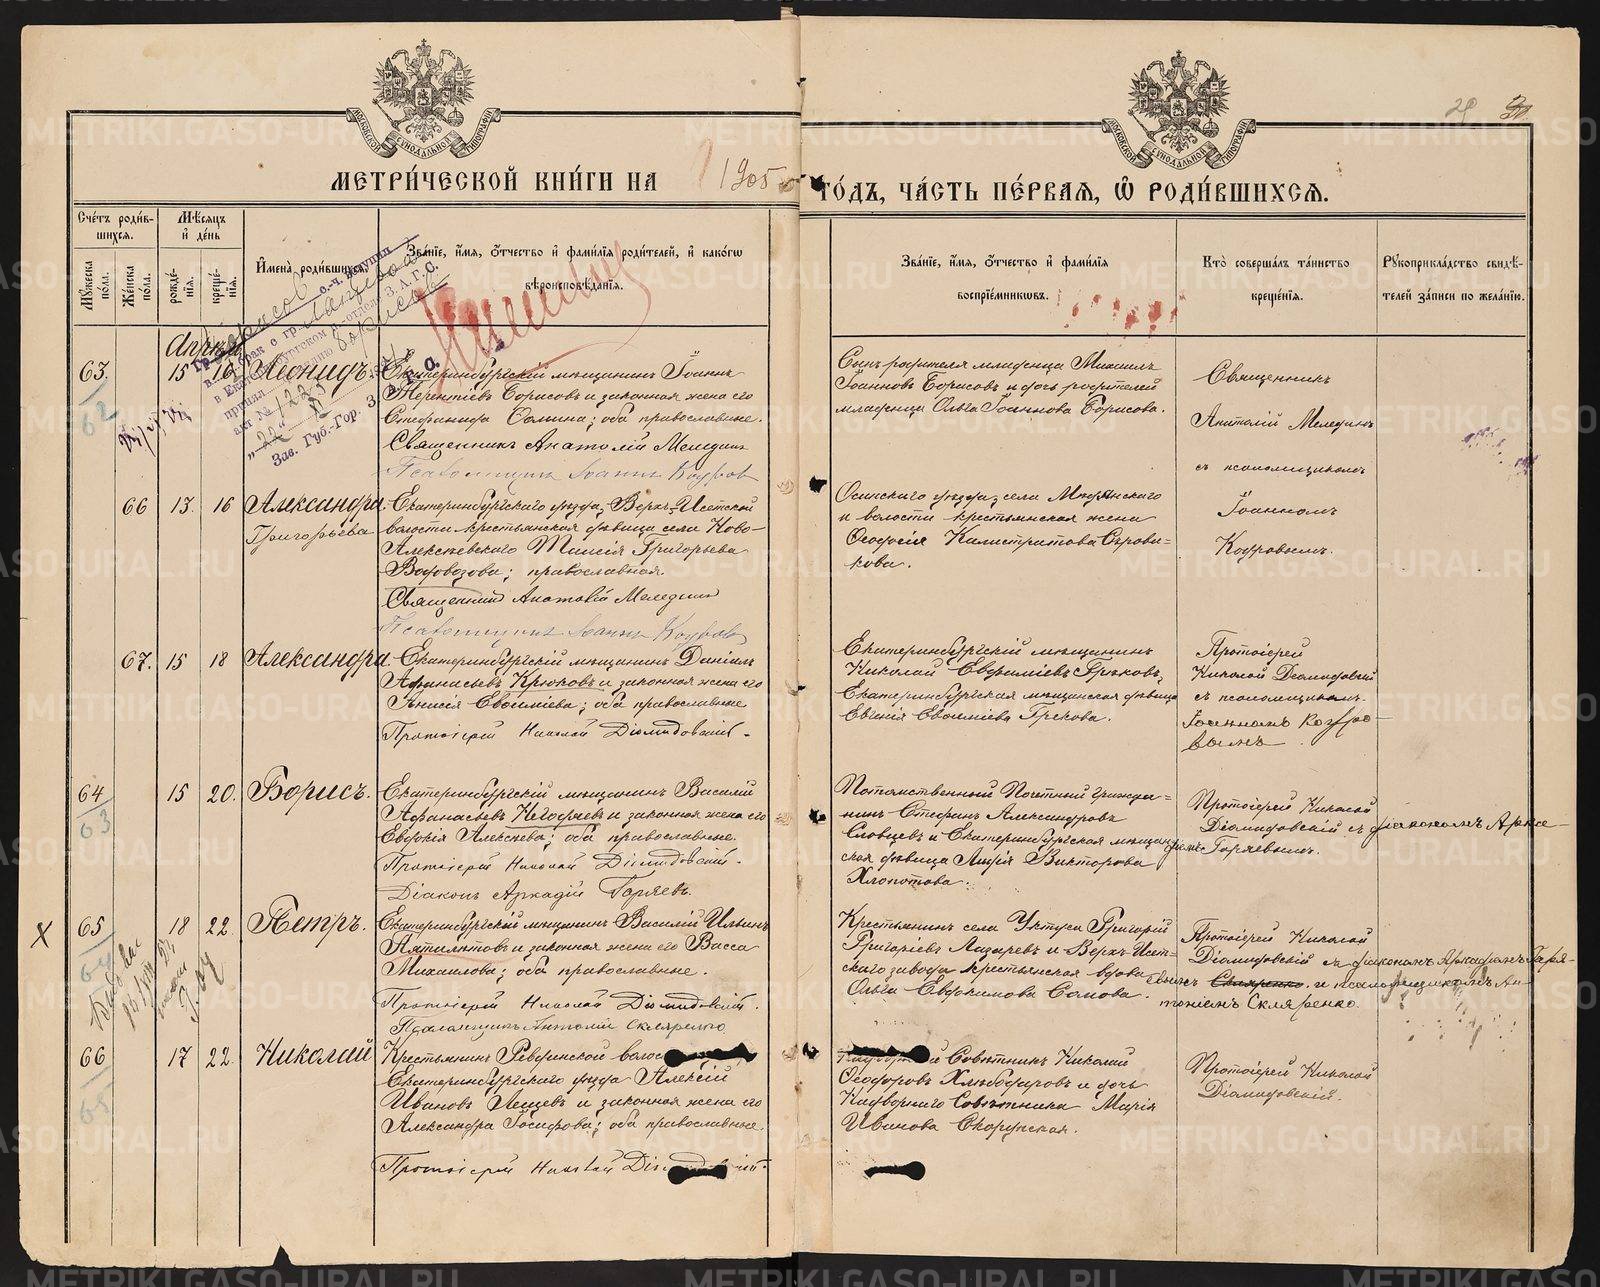 МЕТРИ́ЧЕСКОЙ КНИ́ГИ НА 1905 ГО́ДЪ, ЧА́СТЬ ПЕ́РВАЯ, Ѿ РОДИ́ВШИХСѦ.
Сче́тъ роди́в-
шихсѧ.
Мѣ́сѧцъ
и҆ де́нь
Мꙋ́жеска по́ла.
Же́нска по́ла.
рожде́-
нїѧ.
креще́-
нїѧ.
И҆мена̀ роди́вшихсѧ.
Зва́нїе, и҆́мѧ, ѻ҆́тчество и҆ фами́лїѧ роди́телей, и҆ како́гѡ
вѣроисповѣ́данїѧ.
Зва́нїе, и҆́мѧ, ѻ҆́тчество и҆ фами́лїѧ
воспрїе́мникѡвъ.
Кто̀ соверша́лъ та́инство
креще́нїѧ.
Рꙋкоприкла́дство свидѣ́-
телей за́писи по жела́нїю.
Апрѣль
63. 15 16 Леонидъ.
Екатеринбургскій мѣщанинъ Іоаннъ
Терентіевъ Борисовъ и законная жена его
Стефанида Фомина; оба православные.
Священникъ Анатолій Меледин
Псаломщикъ Іоаннъ Кодров
Сынъ родителя младенца Михаилъ
Іоанновъ Борисовъ и дочь родителей
младенца Ольга Іоаннова Борисова.
Священникъ
Анатолій Мелединъ
съ псаломщикомъ
Іоанномъ
Кодровымъ.
66 13. 16 Александра
Григорьева
Екатеринбургскаго уѣзда, Верхъ-Исетской
волости крестьянская дѣвица села Ново-
Алексѣевскаго Таисія Григорьева
Водовозова; православная.
Священник Анатолій Меледин
Псаломщикъ Іоаннъ Кодров
Осинскаго уѣзда, села
и волости крестьянская жена
Ѳеодосія Калистратова Сѣрови-
кова.
67. 15 18 Александра.
Екатеринбургскій мѣщанинъ Даніилъ
Афанасьевъ Крюковъ и законная жена его
Анисія Евфиміева; оба православные
Протоіерей Николай Діомидовскій.
Екатеринбургскій мѣщанинъ
Николай Евфиміевъ Грѣковъ,
Екатеринбургская мѣщанская дѣвица
Евгенія Евфиміева Грекова.
Протоіерей
Николай Діомидовскій
съ псаломщикомъ.
Іоанномъ Кодро-
вымъ.
64 15 20. Борисъ.
63
Екатеринбургскій мѣщанинъ Василій
Афанасьевъ Негодяевъ и законная жена его
Евдокія Алексѣева; оба православные.
Протоіерей Николай Діомидовскій.
Діаконъ Аркадій Горяевъ.
Потомственный Почетный Гражда-
нинъ Стефанъ Александровъ
Словцевъ и Екатеринбургская мѣщан-
ская дѣвица Викторова
Хлопотова.
Протоіерей Николай
Діомидовскій съ діакономъ Арка-
діемъ Горяевымъ.
Х 65 18 22. Петръ.
64
Екатеринбургскій мѣщанинъ Василій Ильинъ
Пятилѣтовъ и законная жена его Васса
Михаилова; оба православные.
Протоіерей Николай Діомидовскій.
Псаломщикъ Антоній Скляренко
Крестьянинъ села Уктуса Григорій
Григорьевъ Лазаревъ и Верхъ-Исет-
скаго завода крестьянская вдова
Ольга Евдокимова Сомова.
Протоіерей Николай
Діомидовскій съ діакономъ Аркадіемъ Горя-
евымъ и псаломщикомъ Ан-
тоніемъ Скляренко.
66 17 22. Николай
65
Крестьянинъ Ревдинской
Екатеринбургскаго уѣзда Алексій
Ивановъ Лещевъ и законная жена его
Александра Іосифова; оба православные.
Протоіерей Николай
Совѣтникъ Николай
Ѳеодоровъ Хлѣбодаровъ и дочь
Надворнаго Совѣтника Марія
Иванова Скорупская.
Протоіерей Николай
Діомидовскій.